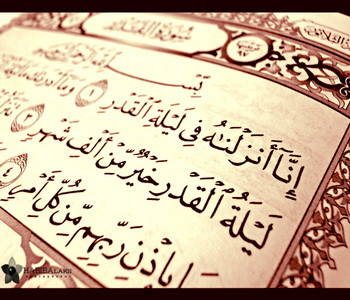 سُورَةُ الْقَدْرِ
بِسْمِ
إِنَّا أَنزَلْنَٰهُ فِى لَيْلَةِ ٱلْقَدْرِ ١ وَمَا أَدْرَىٰكَ
لَيْلَةُ ٱلْقَدْرِ خَيْرٌ مِّنْ أَلْفِ شَهْرٍ ٣
بِإِذْنِ رَبِّهِم مِّن كُلِّ أَمْرٍ ٤